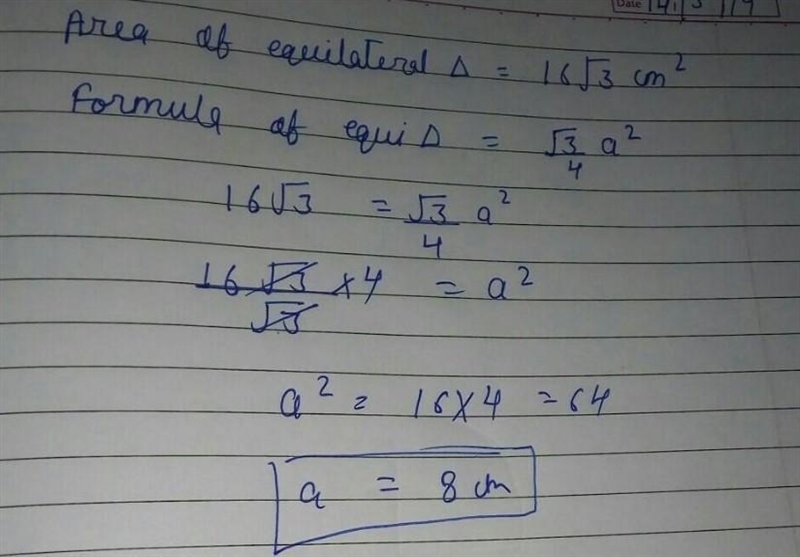 Date
Area of equilateral Δ = 16√3 cm²
Formula of equi Δ = √3/4 a²
16√3 = √3/4 a²
16√3/√3 × 4 = a²
a² = 16×4 = 64
a = 8 cm